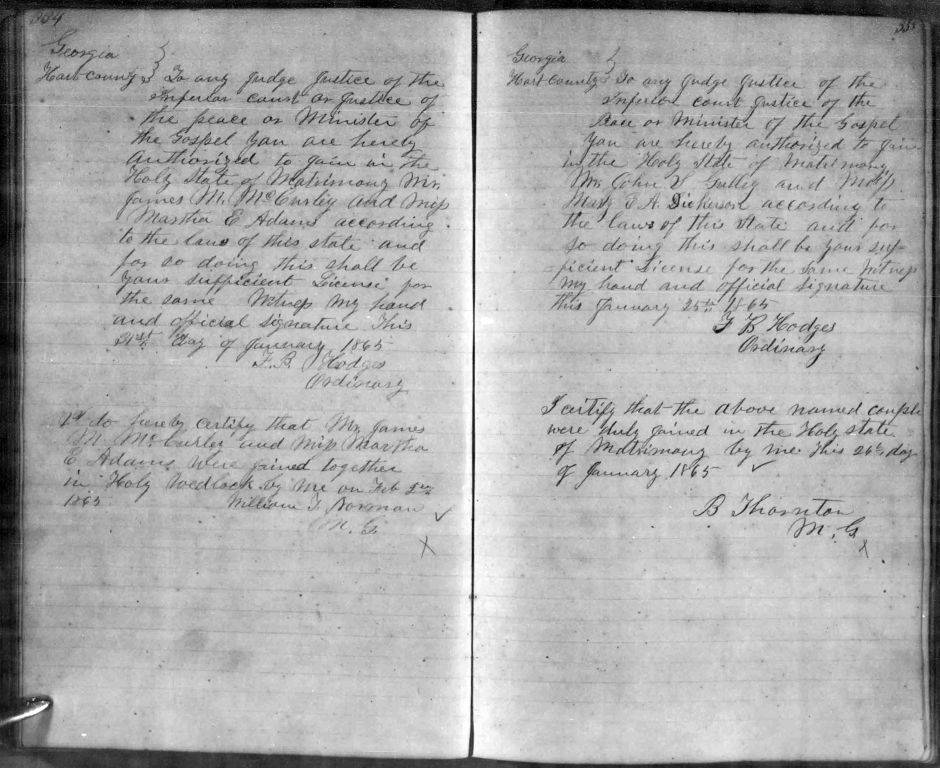 334
Georgia }
Hart County } To any Judge Justice of the
Inferior court or Justice of
the peace or Minister of
the Gospel You are hereby
authorized to join in the
Holy State of Matrimony Mr.
James M. McCurley and Miss
Martha E Adams according
to the laws of this state and
for so doing this shall be
your sufficient License for
the same Witness my hand
and official signature This
21st day of January 1865
F. B. Hodges
Ordinary
I do hereby certify that Mr James
McCurley and Miss Martha
E Adams were joined together
in Holy Wedlock by me on Feb
1865 William T. Norman
M. G.
335
Georgia }
Hart County } To any Judge Justice of the
Inferior court Justice of the
Peace or Minister of the Gospel
You are hereby authorized to join
in the Holy State of Matrimony
Mr John S Gulley and Miss
Mary A Dickerson according to
the laws of this State and for
so doing this shall be your suf-
ficient License for the same Witness
my hand and official signature
this January 25th 1865
F B Hodges
Ordinary
I certify that the above named couple
were duly joined in the Holy state
of Matrimony by me this 26th day
of January 1865
B Thornton
M. G.